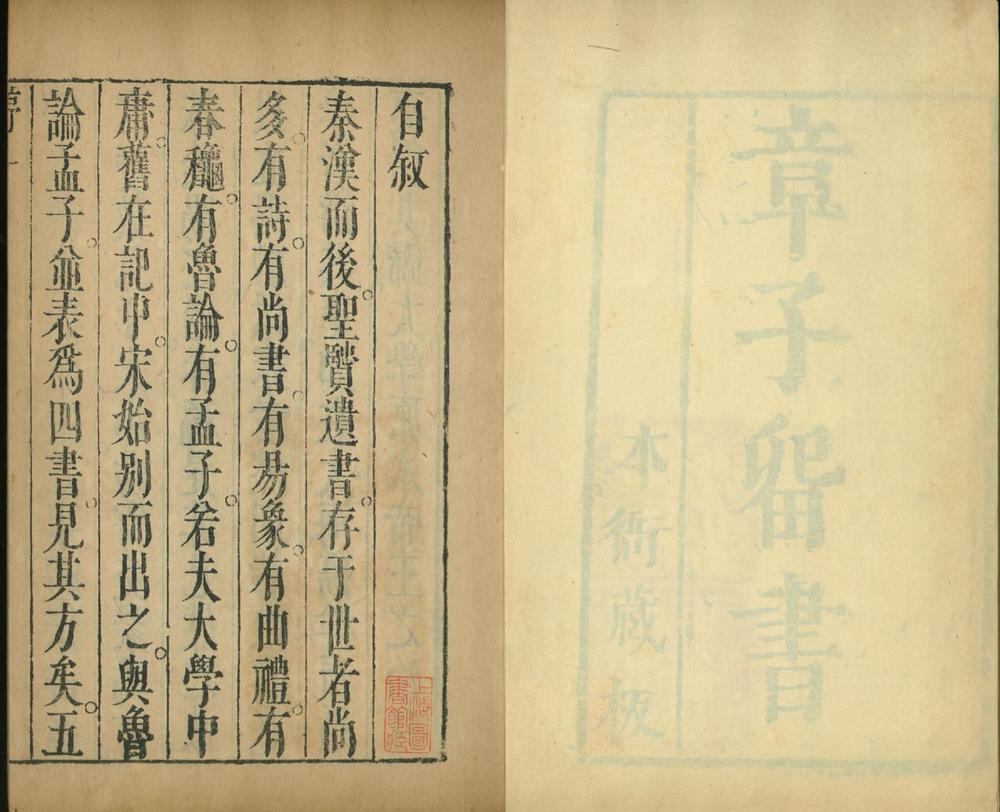 章子畱書
本衙藏板
自叙
秦漢而後。聖賢遺書。存于世者尚
多。有詩。有尚書。有易象。有曲禮。有
春龝。有魯論。有孟子。若夫大學中
庸。舊在記中。宋始別而出之。與魯
論孟子。並表為四書。見其方矣。五
上海圖
書館藏